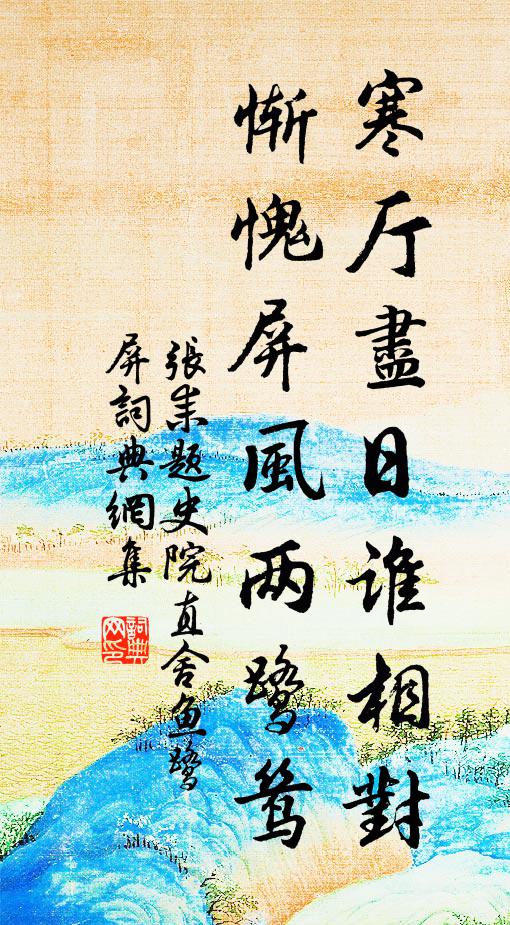 寒厅盡日誰相對
慚愧屏風两鷺鸶
張耒題史院直舍鱼鷺
屏詞典網集
詞典
网印